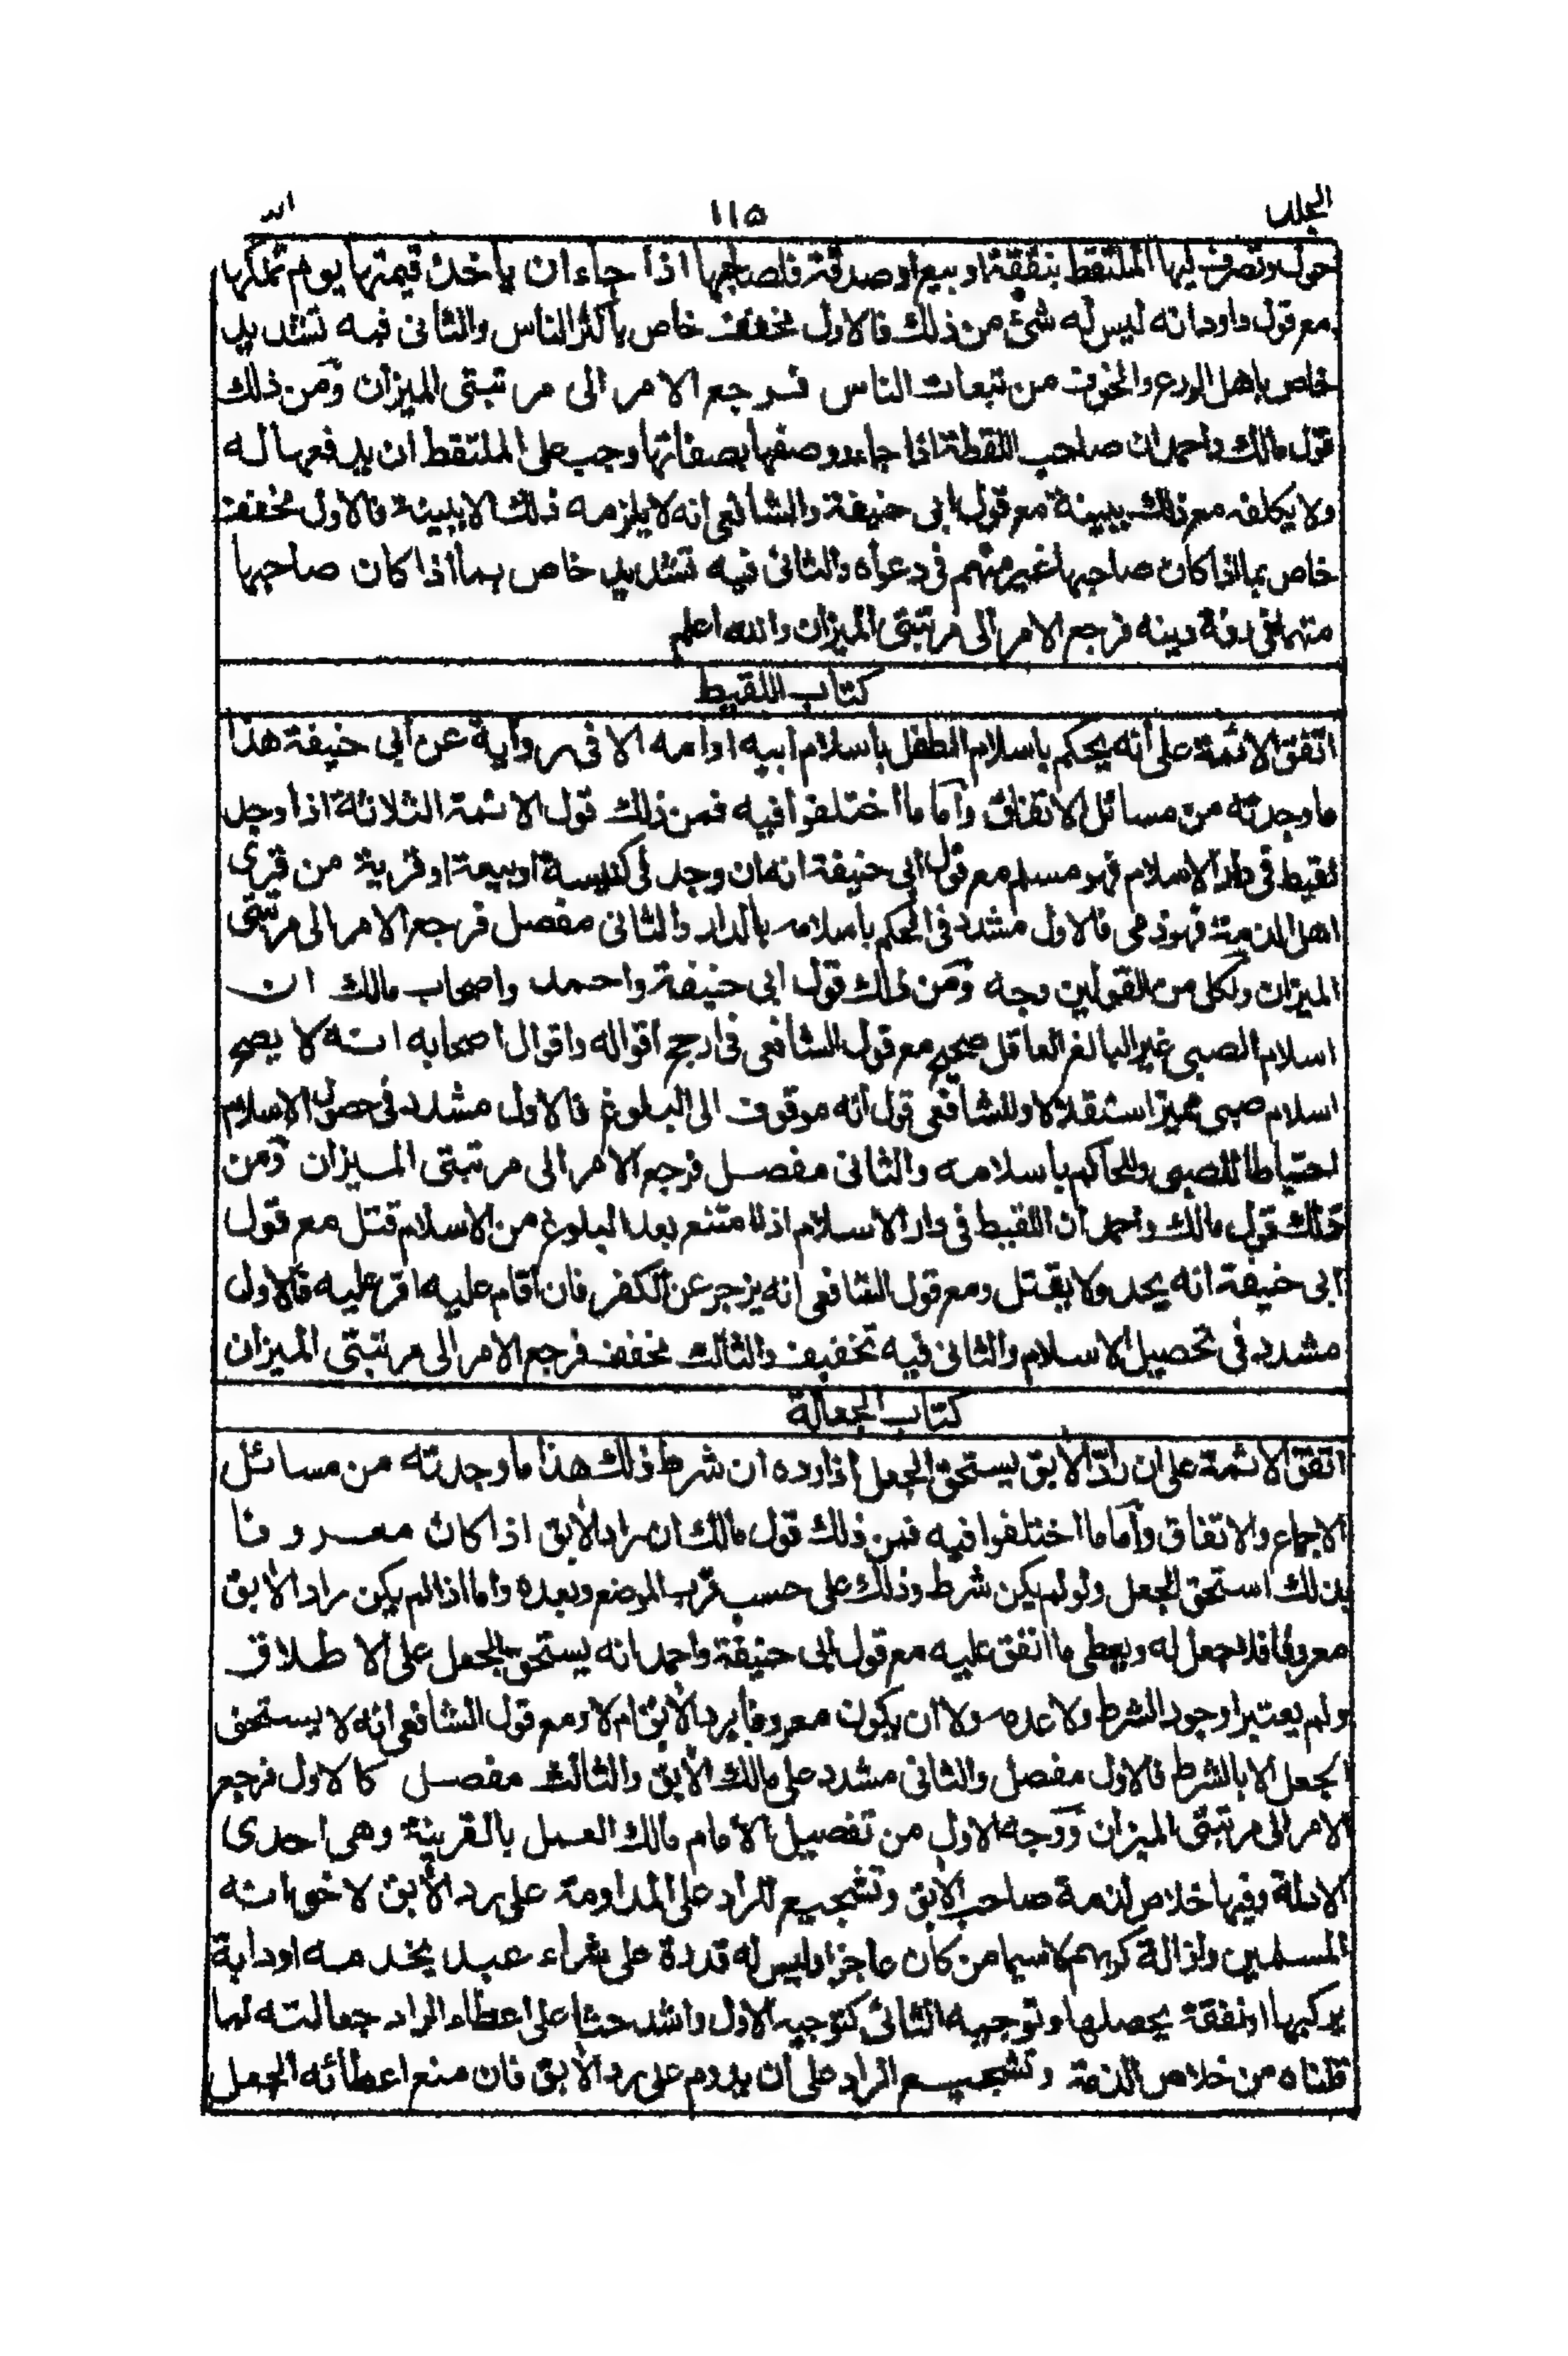 الجلد ١١٥
حول وتصرف فيها الملتقط بنفقة او بيع او صدقة فلصاحبها اذا جاء ان ياخذ قيمتها يوم تملكها
مع قول داود انه ليس له شئ من ذلك فالاول مخفف خاص باكثر الناس والثانى فيه تشديد
خاص باهل الورع والخوف من تبعات الناس فرجع الامر الى مرتبتى الميزان ومن ذلك
قول مالك واحمد ان صاحب اللقطة اذا جاء ووصفها بصفاتها وجب على الملتقط ان يدفعها له
ولا يكلفه مع ذلك ببينة مع قول ابى حنيفة والشافعى انه لا يلزمه ذلك الا ببينة فالاول مخفف
خاص بما اذا كان صاحبها غير متهم فى دعواه والثانى فيه تشديد خاص بما اذا كان صاحبها
متهما فى رقة دينه فرجع الامر الى مرتبتى الميزان والله اعلم
كتاب اللقيط
اتفق الائمة على انه يحكم باسلام الطفل باسلام ابيه او امه الا فى رواية عن ابى حنيفة هذا
ما وجدته من مسائل الاتفاق واما ما اختلفوا فيه فمن ذلك قول الائمة الثلاثة اذا وجد
لقيط فى دار الاسلام فهو مسلم مع قول ابى حنيفة انه ان وجد فى كنيسة او بيعة او قرية من قرى
اهل الذمة فهو ذمى فالاول مشدد فى الحكم باسلامه بالدار والثانى مفصل فرجع الامر الى مرتبتى
الميزان ولكل من القولين وجه ومن ذلك قول ابى حنيفة واحمد واصحاب مالك ان
اسلام الصبى غير البالغ العاقل صحيح مع قول الشافعى فى ارجح اقواله واقوال اصحابه انه لا يصح
اسلام صبى مميز استقلالا وللشافعى قول انه موقوف الى البلوغ فالاول مشدد فى حصول الاسلام
احتياطا للصبى وللحاكم باسلامه والثانى مفصل فرجع الامر الى مرتبتى الميزان ومن
ذلك قول مالك واحمد ان اللقيط فى دار الاسلام اذا امتنع بعد البلوغ من الاسلام قتل مع قول
ابى حنيفة انه يحد ولا يقتل ومع قول الشافعى انه يزجر عن الكفر فان اقام عليه اقر عليه فالاول
مشدد فى تحصيل الاسلام والثانى فيه تخفيف والثالث مخفف فرجع الامر الى مرتبتى الميزان
كتاب الجعالة
اتفق الائمة على ان راد الآبق يستحق الجعل اذا رده ان شرط ذلك هذا ما وجدته من مسائل
الاجماع والاتفاق واما ما اختلفوا فيه فمن ذلك قول مالك ان راد الآبق اذا كان معروفا
بذلك استحق الجعل ولو لم يكن شرط وذلك على حسب قرب الموضع وبعده واما اذا لم يكن راد الآبق
معروفا فلا جعل له ويعطى ما انفق عليه مع قول ابى حنيفة واحمد انه يستحق الجعل على الاطلاق
ولم يعتبرا وجود الشرط ولا عدمه ولا ان يكون معروفا برد الآبق ام لا ومع قول الشافعى انه لا يستحق
الجعل الا بالشرط فالاول مفصل والثانى مشدد على مالك الآبق والثالث مفصل كالاول فرجع
الامر الى مرتبتى الميزان ووجه الاول من تفصيل الامام مالك العمل بالقرينة وهى احدى
الادلة وفيها خلاص لذمة صاحب الآبق وتشجيع للراد على المداومة على رد الآبق لاخوانه
المسلمين وازالة كربهم لا سيما من كان عاجزا وليس له قدرة على شراء عبد يخدمه او دابة
يركبها او نفقة يحصلها وتوجيه الثانى كتوجيه الاول واشد حثا على اعطاء الراد جعالته لما
قلناه من خلاص الذمة وتشجيع الراد على ان يدوم على رد الآبق فان منع اعطائه الجعل